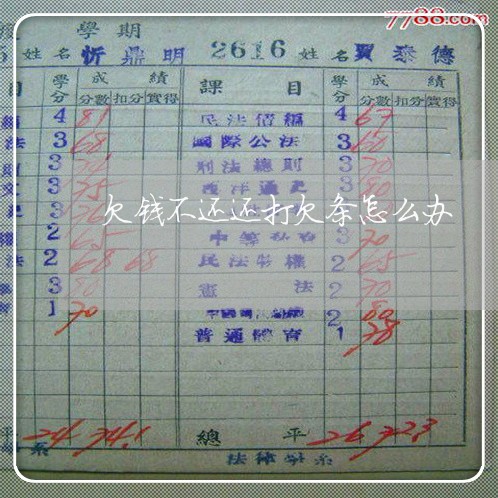 7788.com
學期
姓名 忻鼎明 2616 姓名 賈泰德
目 學分 成績 課目 學分 成績
分數 扣分 實得 分數 扣分 實得
4 81 民法債編 4 67
法 3 68 國際公法 3 60
3 刑法總則 3 70
3 75 西洋通史 3 80
3
欠钱不还还打欠条怎么办
2 65 3 70
法 2 68 68 民法物權 2 65
3 80 憲法 2 70
1 70 2 80
普通體育 1 78
平 24 74.1 總平 26 72.3
系 法律學系